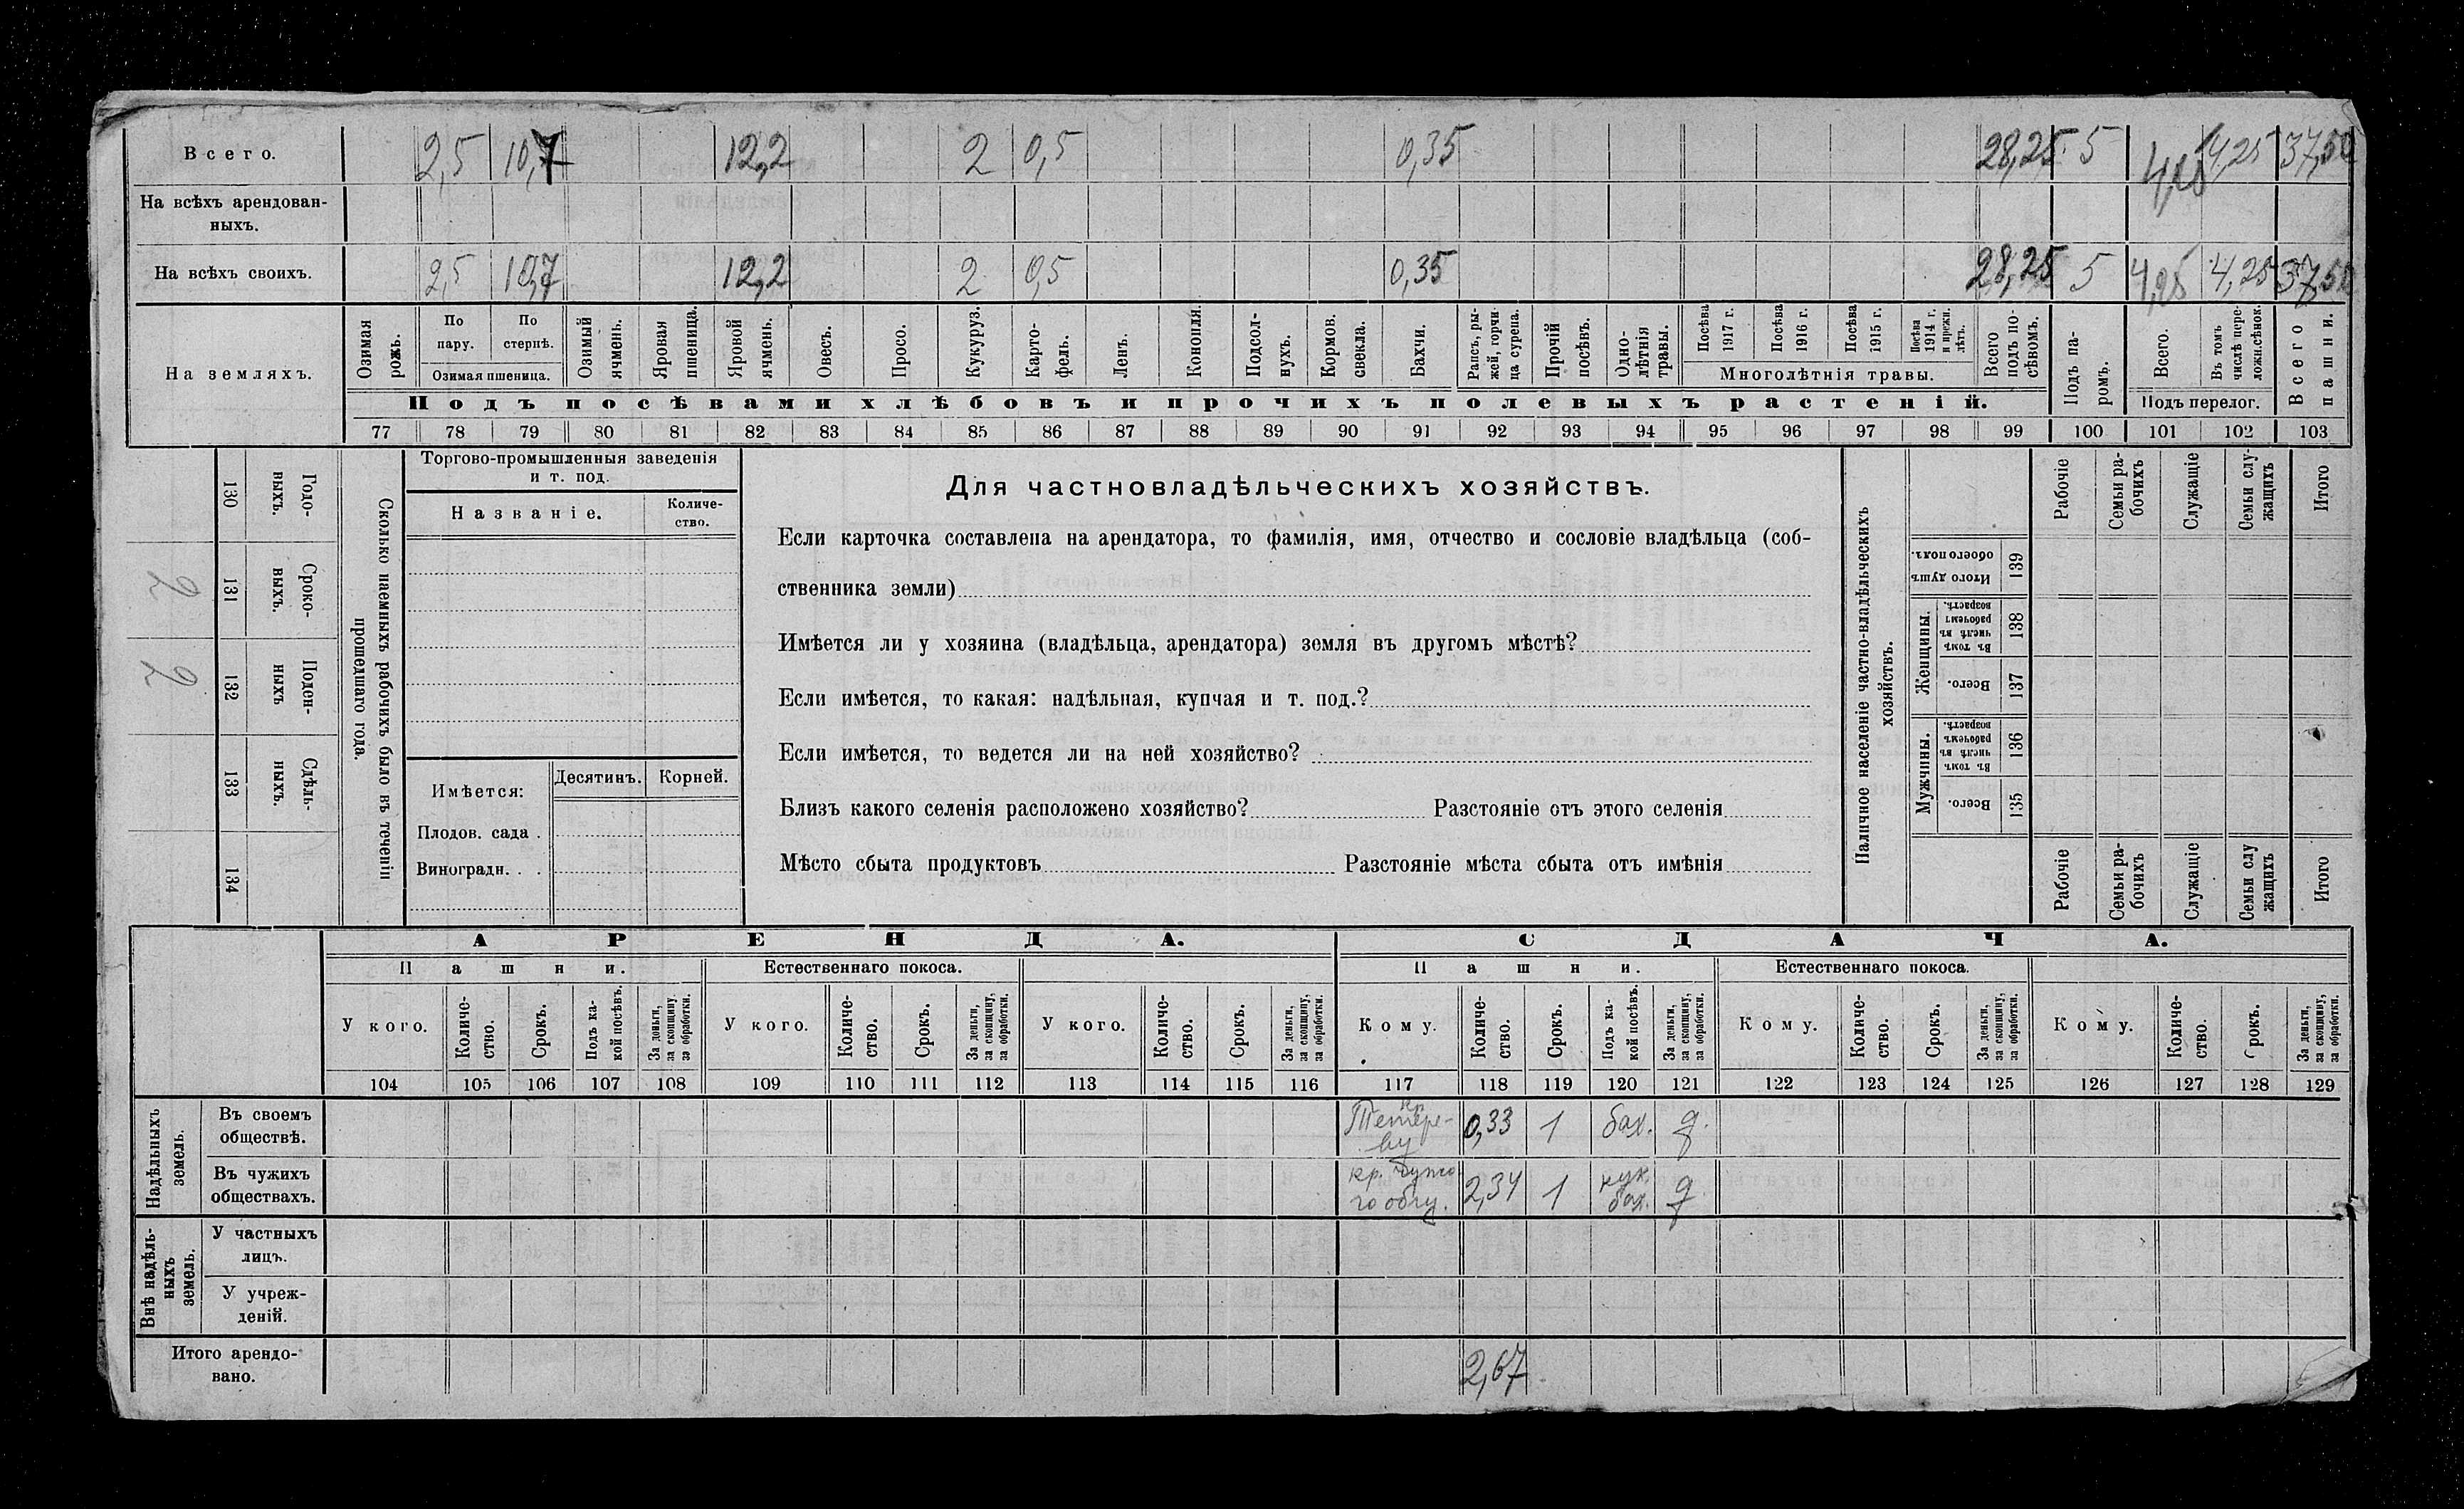 Всего. 2,5 10,7 12,2 2 0,5 0,35 28,25 5 4,25 4,25 37,50
На всѣхъ арендован-
ныхъ.
На всѣхъ своихъ. 2,5 10,7 12,2 2 0,5 0,35 28,25 5 4,25 4,25 37,50
На земляхъ.
Озимая рожь.
По пару.
По стернѣ.
Озимая пшеница.
Озимый ячмень.
Яровая пшеница.
Яровой ячмень.
Овесъ.
Просо.
Кукуруз.
Карто-
фель.
Ленъ.
Конопля.
Подсол-
нухъ.
Кормов. свекла.
Бахчи.
Рапсъ, ры-
жей, горчи-
ца сурепа.
Прочій посѣвъ.
Одно-
лѣтнія травы.
Посѣва 1917 г.
Посѣва 1916 г.
Посѣва 1915 г.
Посѣва 1914 г. и прежн. лѣтъ.
Многолѣтнія травы.
Всего подъ по-
сѣвомъ.
Подъ па-
ромъ.
Всего.
Въ томъ числѣ пере-
ложн. сѣнок.
Подъ перелог.
Всего пашни.
Подъ посѣвами хлѣбовъ и прочихъ полевыхъ растеній.
77 78 79 80 81 82 83 84 85 86 87 88 89 90 91 92 93 94 95 96 97 98 99 100 101 102 103
Годо-
ныхъ.
130
Сроко-
выхъ.
131
2
Поден-
ныхъ
132
2
Сдѣль-
ныхъ.
133
134
Сколько наемныхъ рабочихъ было въ теченіи
прошедшаго года.
Торгово-промышленныя заведенія
и т. под.
Названіе.
Количе-
ство.
Имѣется:
Десятинъ.
Корней.
Плодов. сада .
Виноградн. . .
Для частновладѣльческихъ хозяйствъ.
Если карточка составлена на арендатора, то фамилія, имя, отчество и сословіе владѣльца (соб-
ственника земли)
Имѣется ли у хозяина (владѣльца, арендатора) земля въ другомъ мѣстѣ?
Если имѣется, то какая: надѣльная, купчая и т. под.?
Если имѣется, то ведется ли на ней хозяйство?
Близъ какого селенія расположено хозяйство? Разстояніе отъ этого селенія
Мѣсто сбыта продуктовъ Разстояніе мѣста сбыта отъ имѣнія
Наличное населеніе частно-владѣльческихъ
хозяйствъ.
Рабочіе
Семьи ра-
бочихъ
Служащіе
Семьи слу-
жащихъ
Итого
Итого душъ обоего пол.
139
Женщины.
Въ томъ числѣ въ рабочемъ возрастѣ.
138
Всего.
137
Мужчины.
Въ томъ числѣ въ рабочемъ возрастѣ.
136
Всего.
135
Рабочіе
Семьи ра-
бочихъ
Служащіе
Семьи слу
жащихъ
Итого
АРЕНДА. СДАЧА.
Пашни. Естественнаго покоса. Пашни. Естественнаго покоса.
У кого.
Количе-
ство.
Срокъ.
Подъ ка-
кой посѣвъ.
За деньги, за скопщину, за обработки.
У кого.
Количе-
ство.
Срокъ.
За деньги, за скопщину, за обработки.
У кого.
Количе-
ство.
Срокъ.
За деньги, за скопщину, за обработки.
Кому.
Количе-
ство.
Срокъ.
Подъ ка-
кой посѣвъ.
За деньги, за скопщину, за обработки.
Кому.
Количе-
ство.
Срокъ.
За деньги, за скопщину, за обработки.
Кому.
Количе-
ство.
Срокъ.
За деньги, за скопщину, за обработки.
104 105 106 107 108 109 110 111 112 113 114 115 116 117 118 119 120 121 122 123 124 125 126 127 128 129
Надѣльныхъ
земель.
Въ своемъ
обществѣ.
кр.
Тетере-
ву 0,33 1 бах. д.
Въ чужихъ
обществахъ.
кр. чужо
го общ. 2,34 1 кук. бах. д.
Внѣ надѣль-
ныхъ
земель.
У частныхъ
лицъ.
У учреж-
деній.
Итого арендо-
вано. 2,67